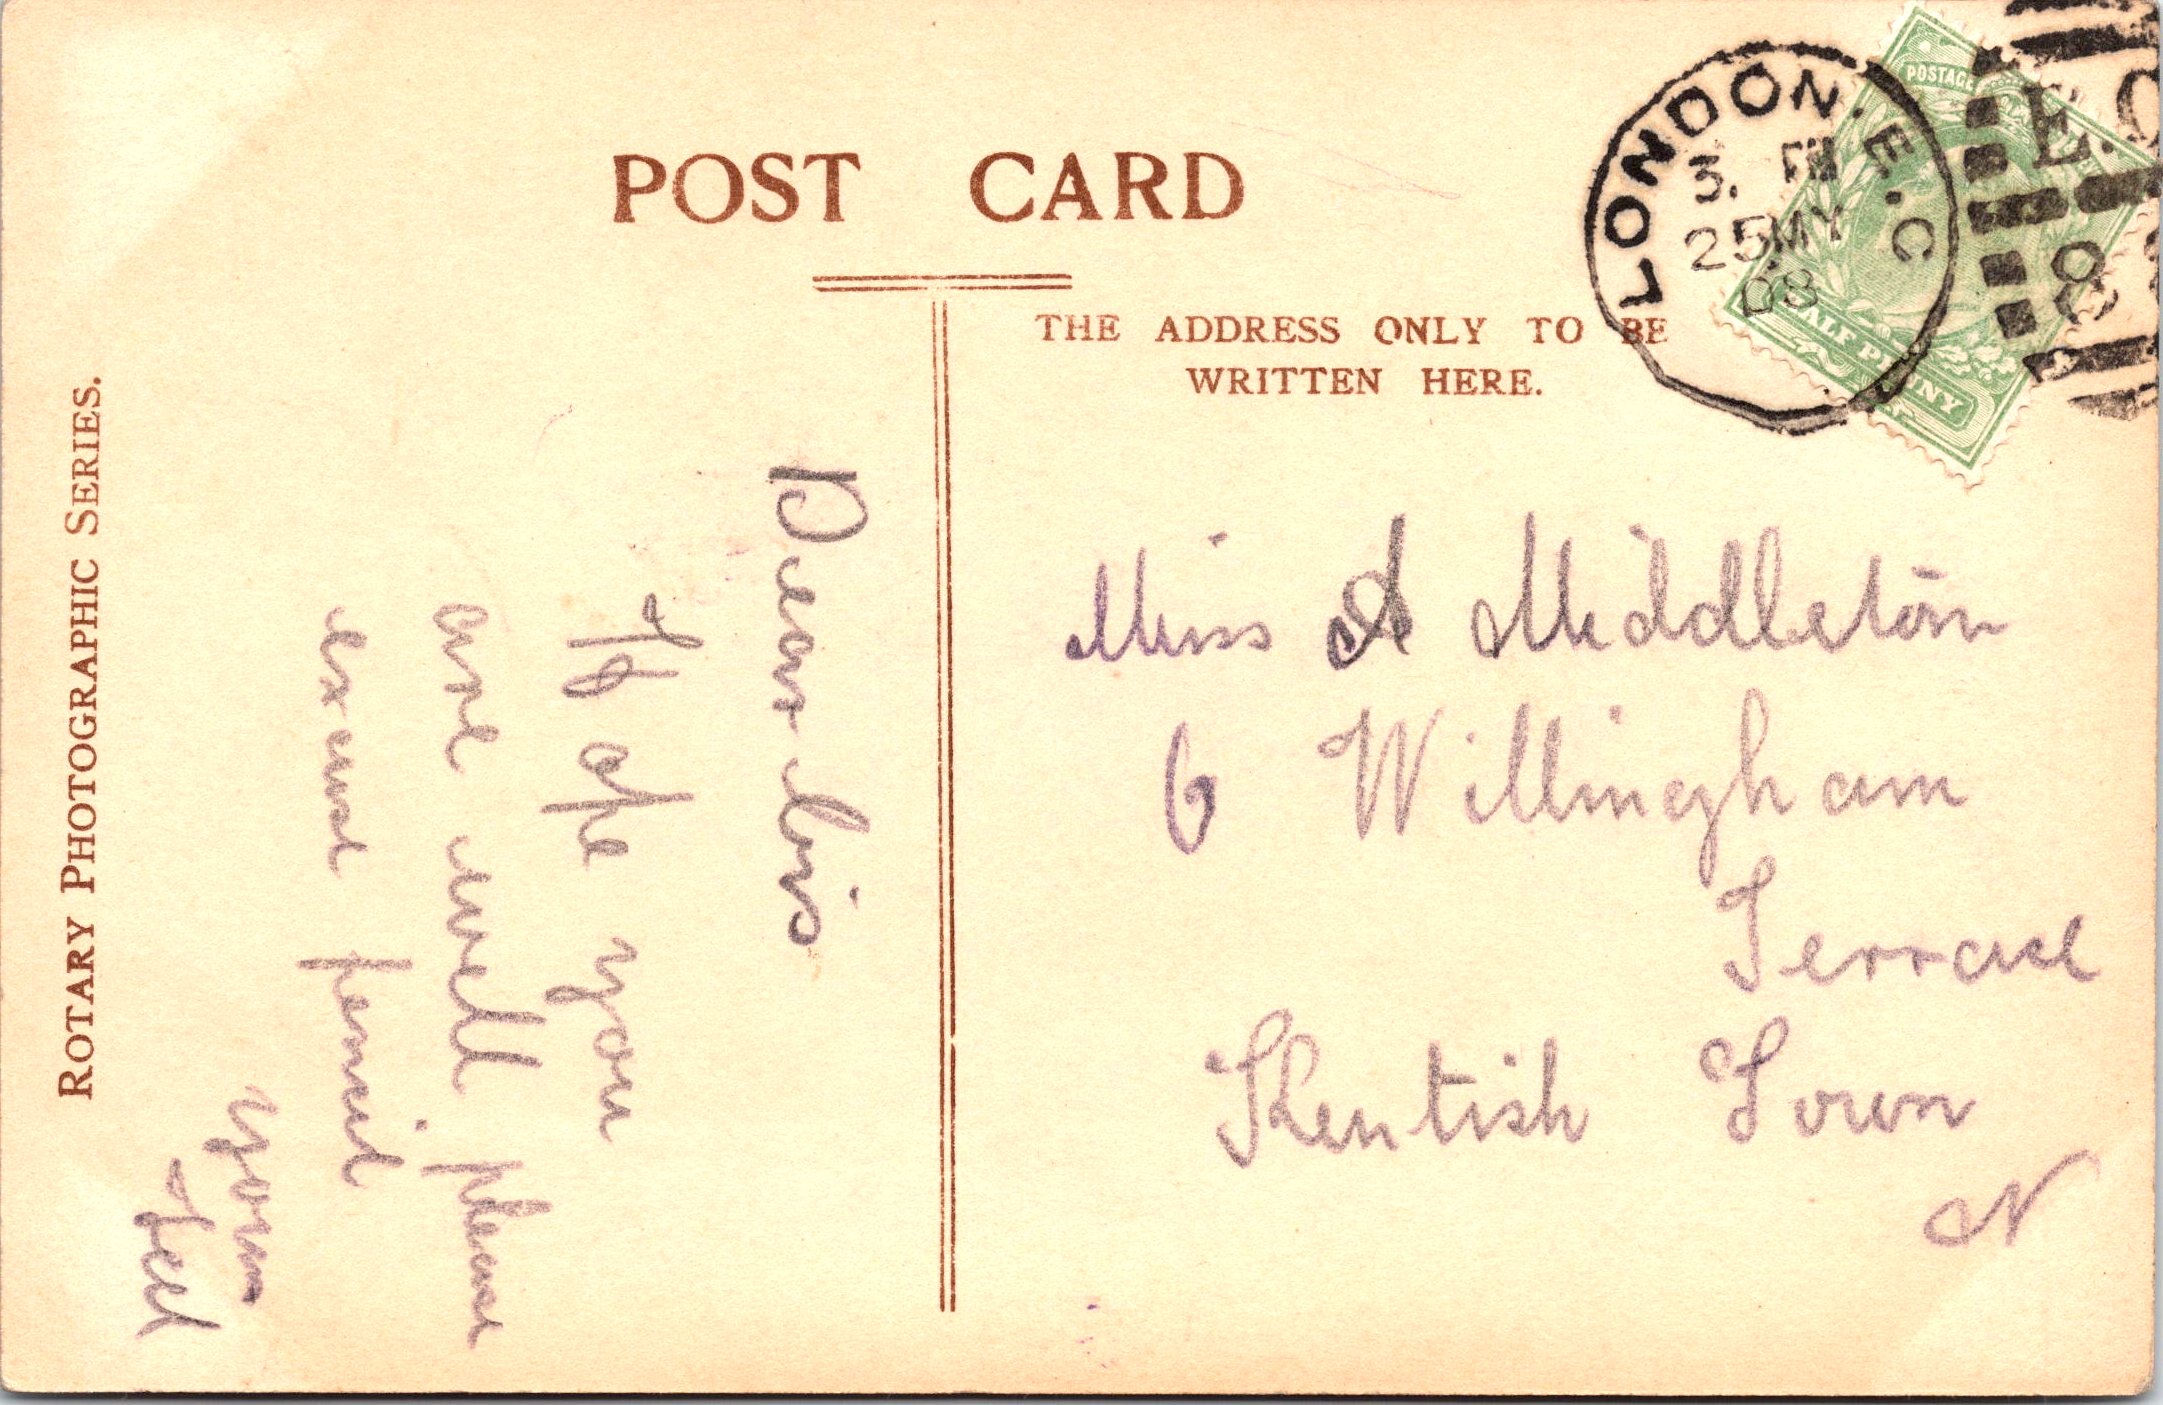 POST CARD
THE ADDRESS ONLY TO BE
WRITTEN HERE.
ROTARY PHOTOGRAPHIC SERIES.
LONDON. E.C
3. PM
25 MY
08
E.C
8
POSTAGE
HALF PENNY
Dear
Hope you
are well please
excuse pencil
yours
Miss A Middleton
6 Willingham
Terrace
Kentish Town
N